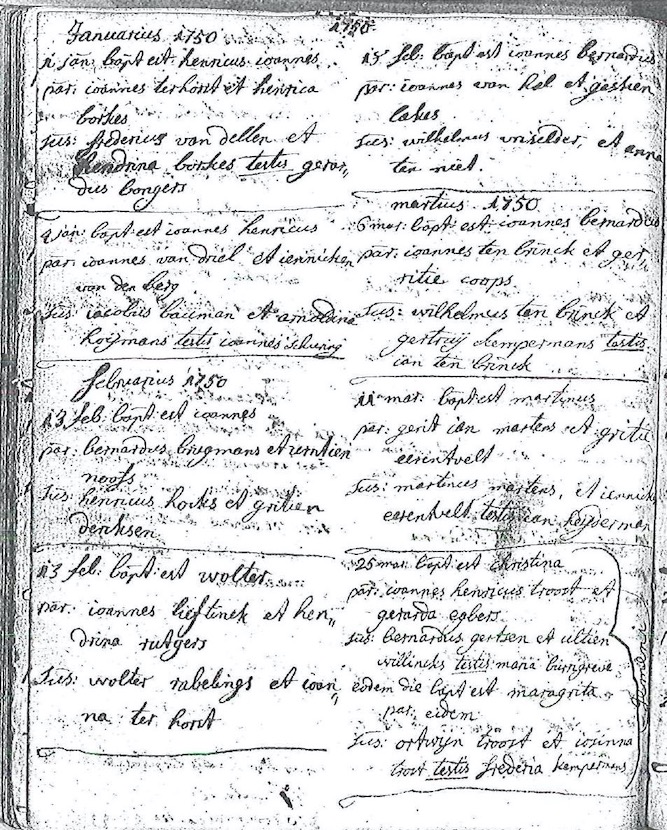 1750
Januarius 1750
1 jan: bapt est henricus ioannes
par: ioannes terhorst et henrica
borkes
sus: fredericus van dellen et
hendrina borkes testis gerar„
dus bongers
2 jan: bapt est ioannes henricus
par: ioannes van driel et iennichen
van den berg
sus: iacobus bauman et arnoldina
koijmans testis ioannes
februarius 1750
13 feb: bapt est ioannes
par: bernardus brugmans et
noofs
sus: henricus hocks et gritien
dericksen
13 feb: bapt est wolter
par: ioannes lieftinck et hen„
drina rutgers
sus: wolter rabelings et ioan„
na ter horst
15 feb: bapt est ioannes bernardus
par: ioannes van hal et gestien
lakes
sus: wilhelmus vriselder, et anna
ten niet.
martius 1750
6 mar: bapt est ioannes bernardus
par: ioannes ten brinck et ger„
ritie coops
sus: wilhelmus ten brinck et
gertruij kempermans testis
ian ten brinck
11 mar: bapt est martinus
par: gerit ian martens et gritie
eerentvelt
sus: martinus martens, et iennich
eerentvelt testis ian
25 mar: bapt est christina
par: ioannes henricus troost et
gerarda egbers
sus: bernardus gertsen et
willincks testis maria
eodem die bapt est maragrita
par: eidem
sus: ortwijn troost et iosinna
trost testis frederia kempermans